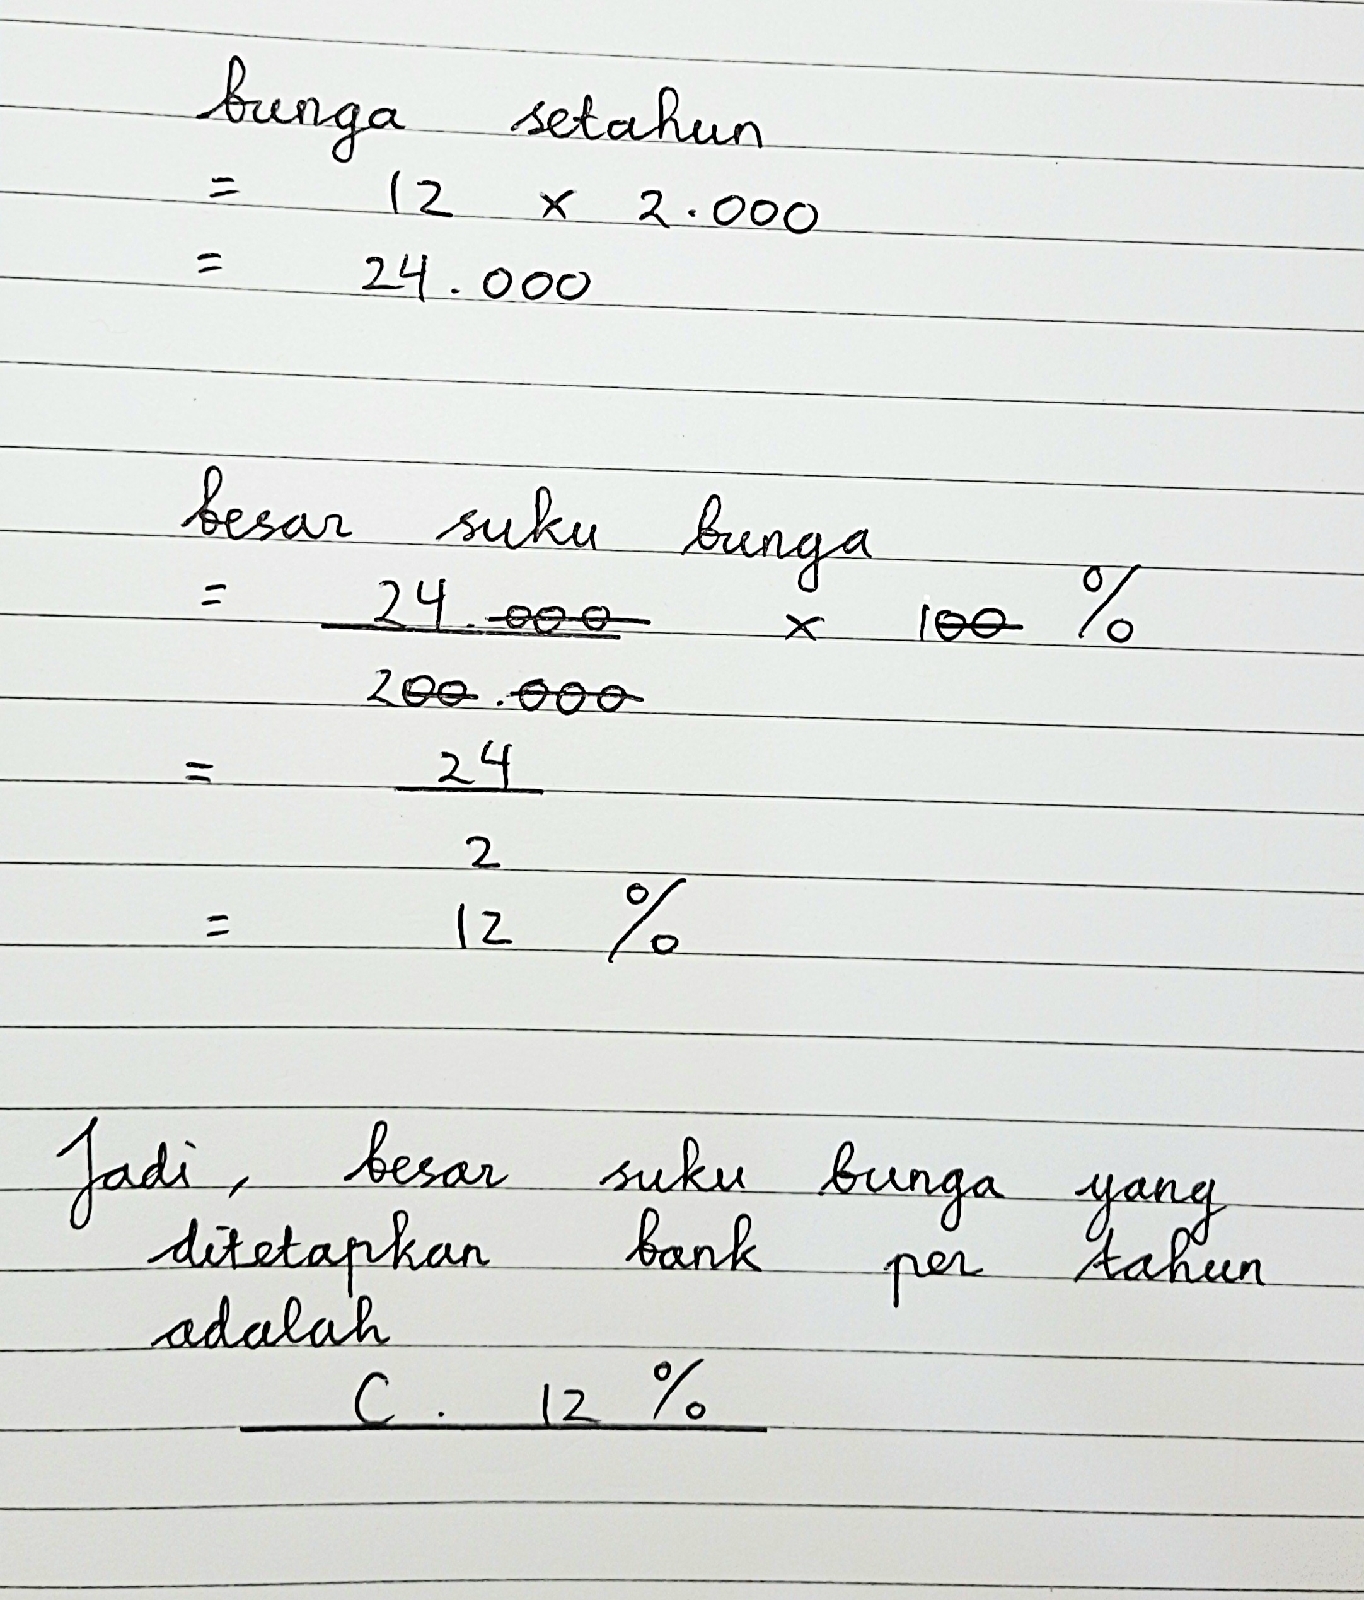 bunga setahun
= 12 x 2.000
= 24.000
besar suku bunga
= 24.000 x 100 %
200.000
= 24
2
= 12 %
Jadi, besar suku bunga yang
ditetapkan bank per tahun
adalah
C. 12 %